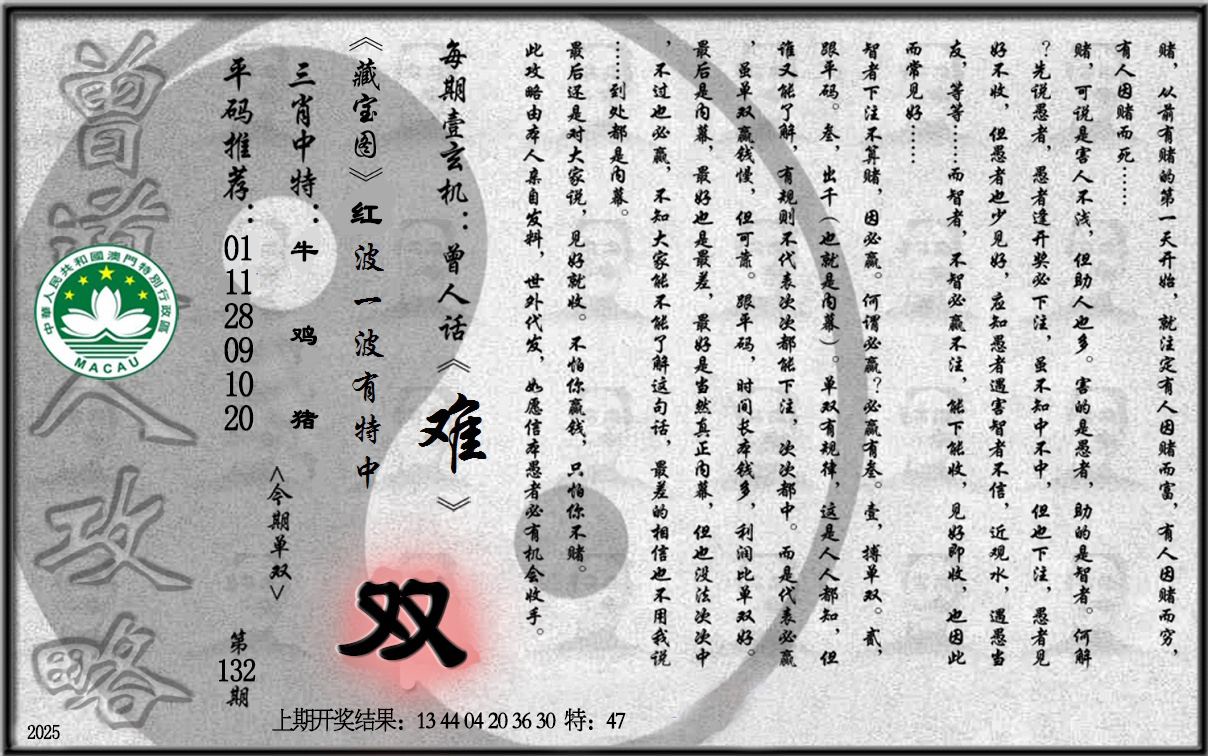 赌，从前有赌的第一天开始，就注定有人因赌而富，有人因赌而穷，
有人因赌而死……
赌，可说是害人不浅，但助人也多。害的是愚者，助的是智者。何解
？先说愚者，愚者逢开奖必下注，虽不知中不中，但也下注，愚者见
好不收，但愚者也少见好，应知愚者遇害智者不信，近观水，遇愚当
友，等等……而智者，不智必赢不注，能下能收，见好即收，也因此
而常见好……
智者下注不算赌，因必赢。何谓必赢？必赢有叁。壹，搏单双。贰，
跟平码。叁，出千（也就是内幕）。单双有规律，这是人人都知，但
谁又能了解，有规则不代表次次都能下注，次次都中。而是代表必赢
，虽单双赢钱慢，但可靠。跟平码，时间长本钱多，利润比单双好。
最后是内幕，最好也是最差，最好是当然真正内幕，但也没法次次中
，不过也必赢，不知大家能不能了解这句话，最差的相信也不用我说
……到处都是内幕。
最后还是对大家说，见好就收。不怕你赢钱，只怕你不赌。
此攻略由本人亲自发料，世外代发，如愿信本愚者必有机会收手。
每期壹玄机：曾人话《难》
《藏宝图》红波一波有特中
双
三肖中特：牛鸡猪
<今期单双>
平码推荐：01 11 28 09 10 20
第132期
曾道人攻略
中華人民共和國澳門特別行政區
MACAU
上期开奖结果：13 44 04 20 36 30 特：47
2025